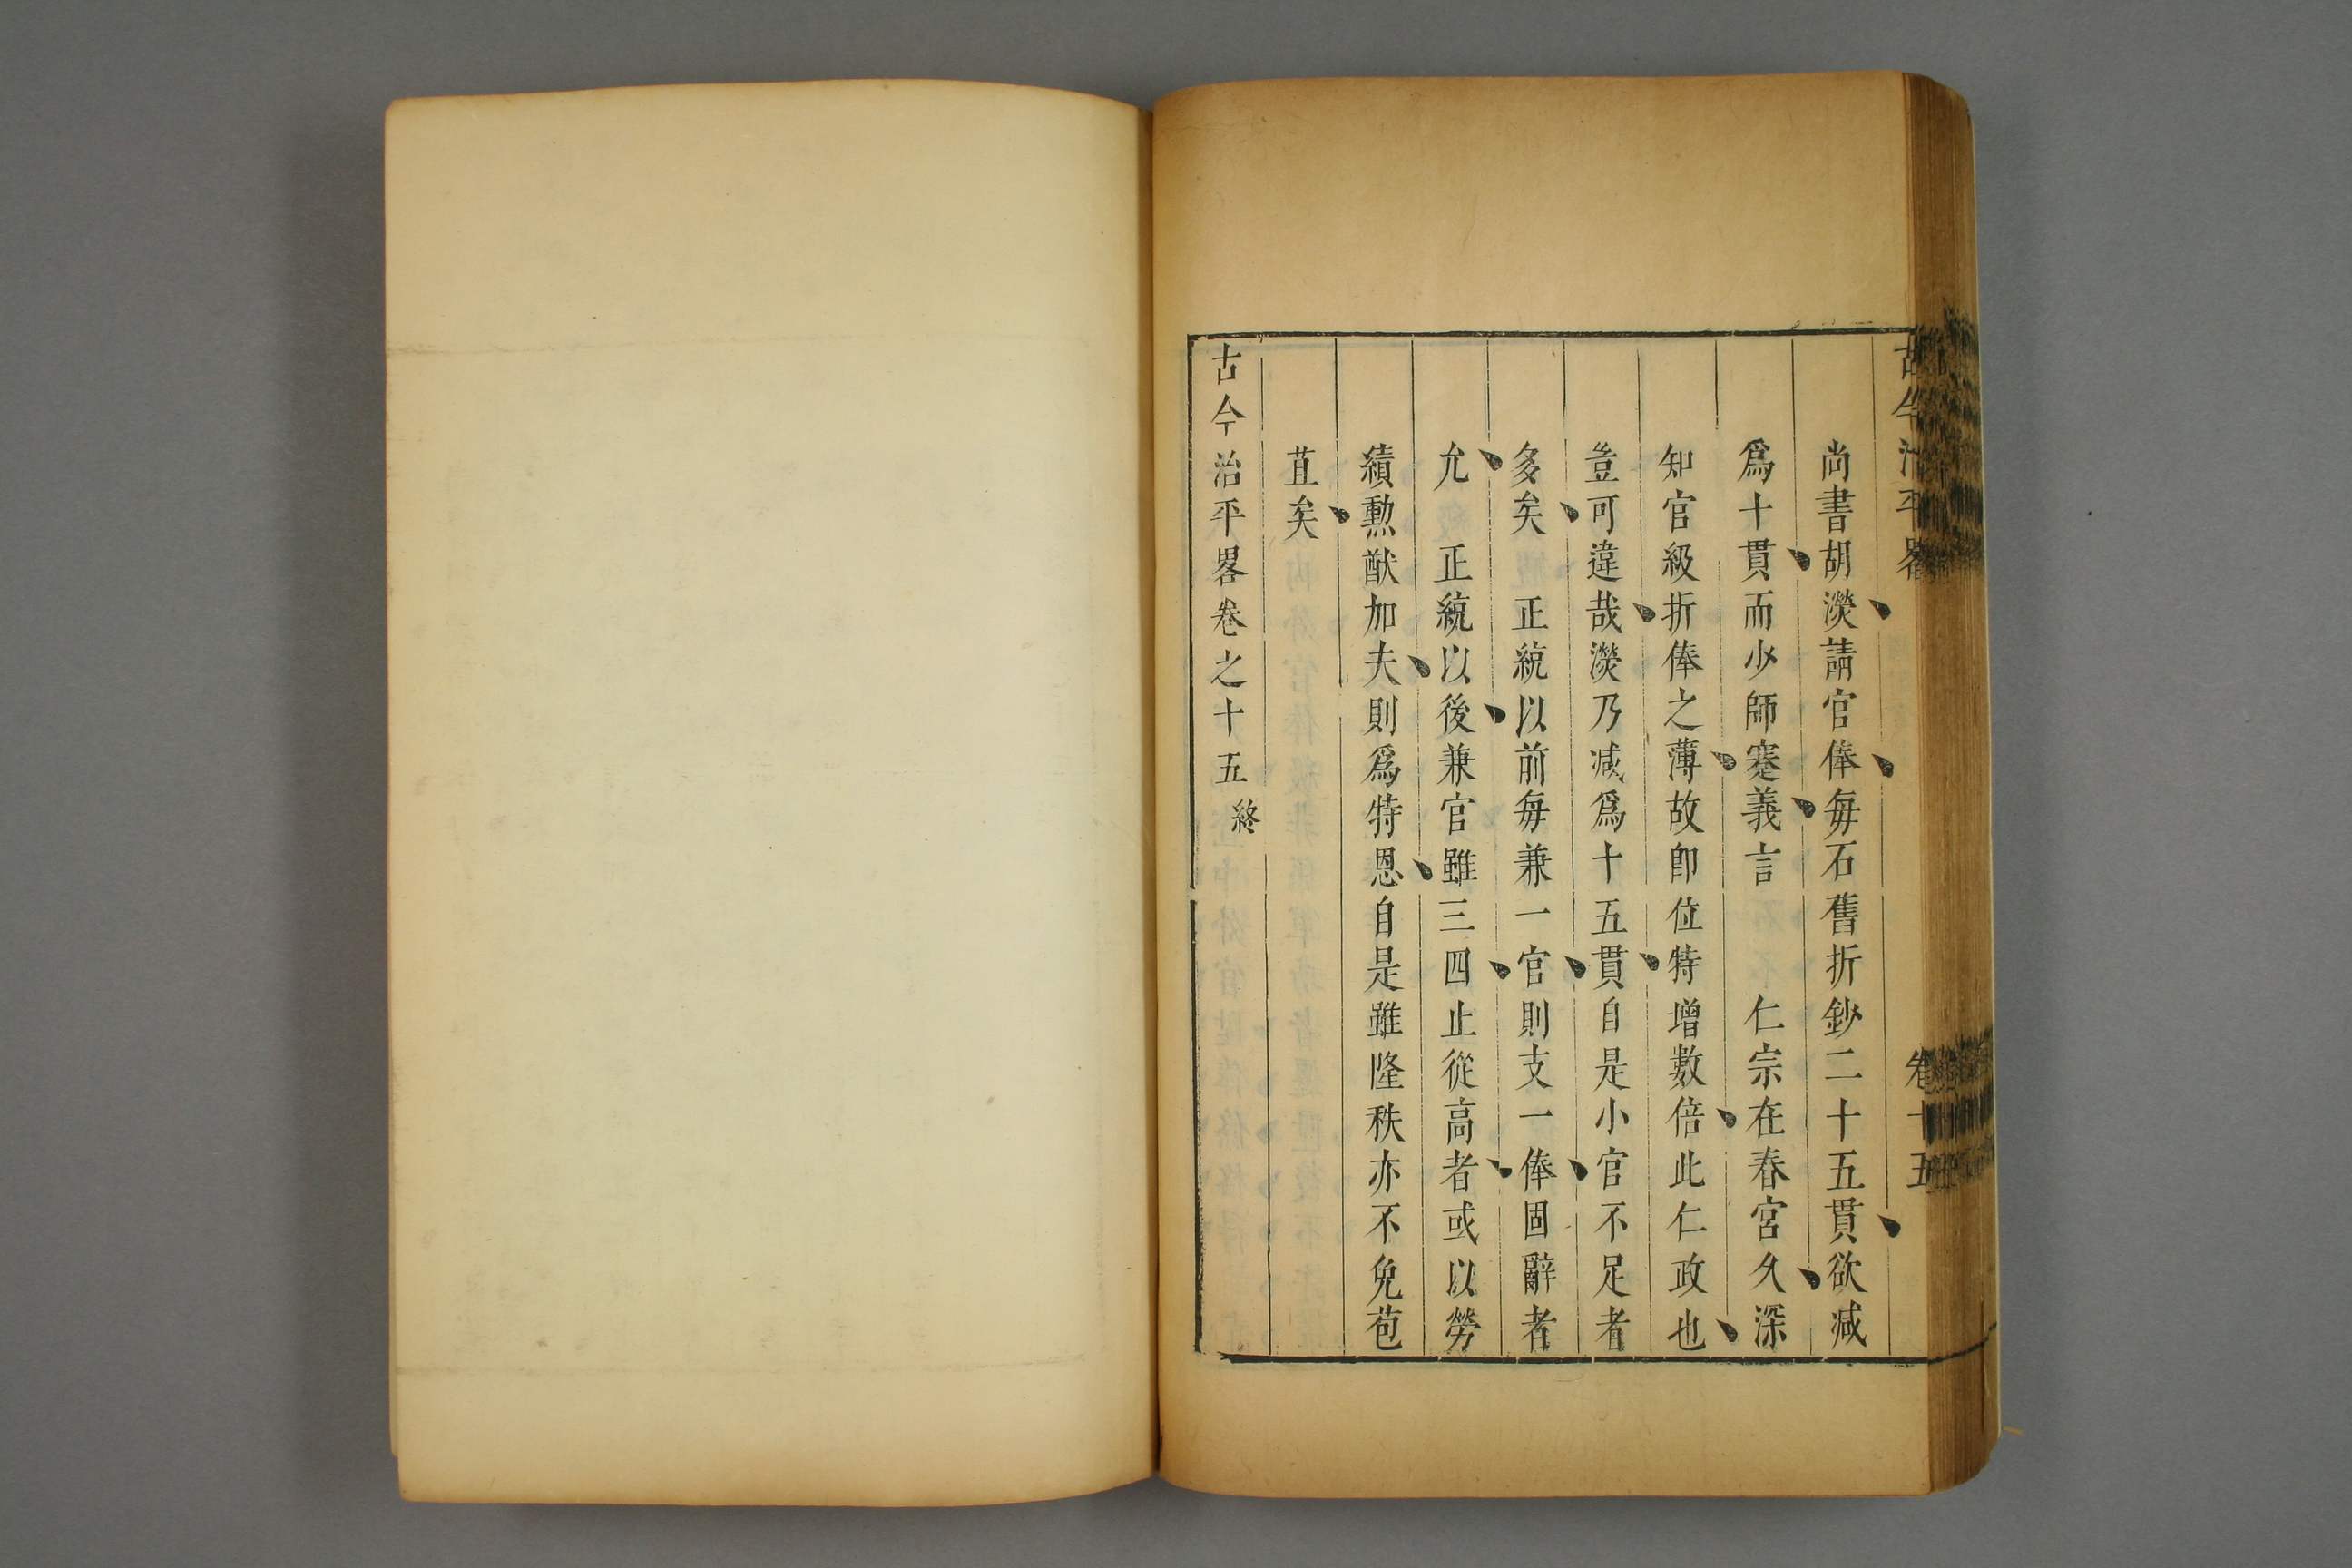 古今治平畧 卷十五
尚書胡濙請官俸每石舊折鈔二十五貫欲减
爲十貫而少師蹇義言 仁宗在春宮久深
知官級折俸之薄故卽位特增數倍此仁政也
豈可違哉濙乃减爲十五貫自是小官不足者
多矣 正統以前每兼一官則支一俸固辭者
允 正統以後兼官雖三四止從高者或以勞
績勲猷加夫則爲特恩自是雖隆秩亦不免苞
苴矣
古今治平畧卷之十五終